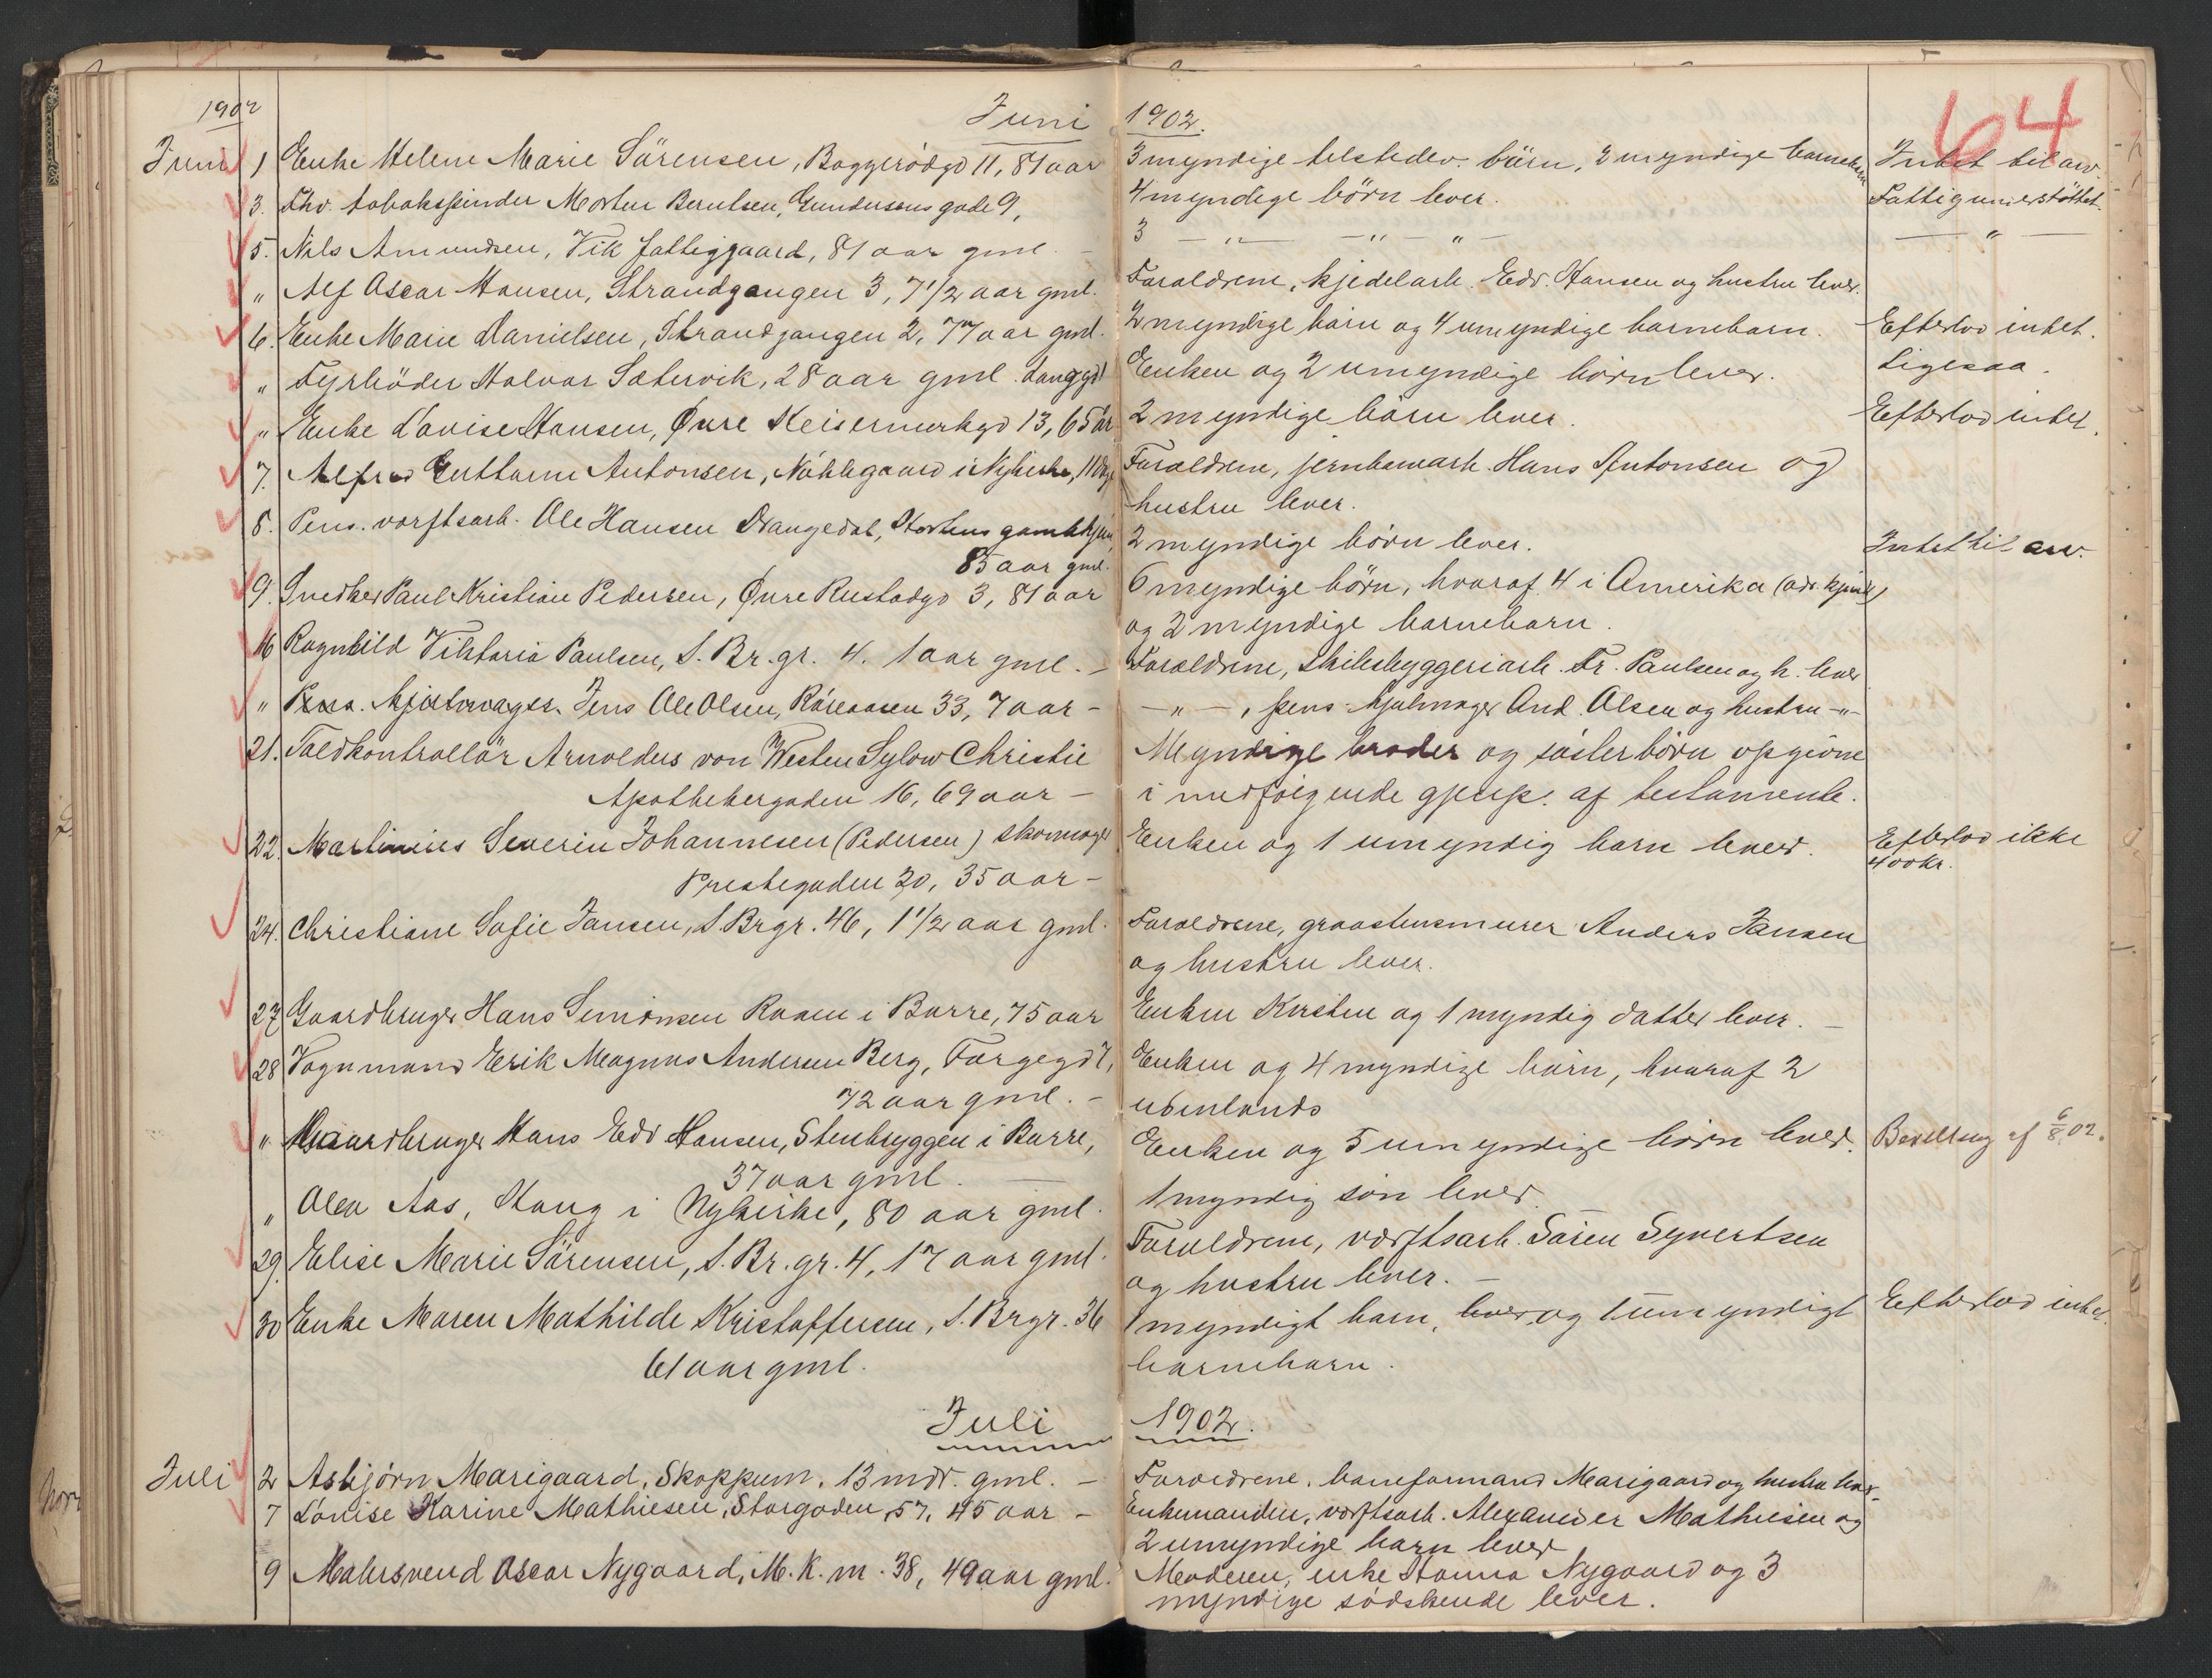 1902
Juni 1902.
64
Juni 1 Enke Helene Marie Sörensen, Baggerødgd 11, 81 aar
3 myndige tilstedev. börn, 2 myndige barnebarn
Intet til arv.
3. Fhv. tobakspinder Morten Berntsen, Gundersens gade 9,
4 myndige börn lever.
Fattigunderstöttet.
5. Nils Amundsen, Vik fattiggaard, 81 aar gml. -
3 - " - - " - " -
- " -
" Alf Oscar Hansen, Strandgangen 3, 7 1/2 aar gml.
Foraldrene, kjedelarb. Edv. Hansen og hustru lever.
6. Enke Marie Danielsen, Strandgangen 2, 77 aar gml.
2 myndige börn og 4 umyndige barnebarn.
Efterlod intet.
" Fyrböder Halvor Sætervik, 28 aar gml. Langgd
Enken og 2 umyndige börn lever.
Ligesaa.
" Enke Lovise Hansen, Øvre Keisemerkgd 13, 65 aar
2 myndige börn lever.
Efterlod intet.
7. Alfred Guttorm Antonsen, Nökkegaard i Nykirke, 11 dage
Foraldrene, jernbanearb. Hans Antonsen og
hustru lever.
8. Pens. verftsarb. Ole Hansen Drangedal, Hortens gamlehjem,
85 aar gml.
2 myndige börn lever.
Intet til arv.
9. Snedker Paul Kristian Pedersen, Øvre Rustadgd 3, 81 aar
6 myndige börn, hvoraf 4 i Amerika (adr. kjendt)
og 2 myndige barnebarn.
16 Ragnhild Viktoria Paulsen, S. Br. gr. 4. 1 aar gml. -
Foraldrene, skibsbyggeriarb. Fr. Paulsen og h. lever
" Pens. hjulmager Jens Ole Olsen, Råseaasen 33, 7 aar -
- " -, pens. hjulmager And. Olsen og hustru -"-
21. Toldkontrollör Arnoldus von Westen Sylow Christie
Apothekergaden 16, 69 aar -
Myndige broder og sösterbörn opgivne
i medfölgende gjenp. af testamente.
22. Martinius Severin Johannesen (Pedersen) skomager
Prestegaden 20, 35 aar -
Enken og 1 umyndig barn lever.
Efterlod ikke
400 kr.
24. Christiane Sofie Jansen, S. Brgr. 46, 1 1/2 aar gml.
Foraldrene, graastensmurer Anders Jansen
og hustru lever.
27 Gaardbruger Hans Simonsen Raaen i Borre, 75 aar
Enken Kirsten og 1 myndig datter lever. -
28 Vognmand Erik Magnus Andersen Berg, Fargegd 7,
72 aar gml. -
Enken og 4 myndige börn, hvoraf 2
udenlands
" Gaardbruger Hans Edv Hansen, Stenbryggen i Borre,
37 aar gml. -
Enken og 5 umyndige börn lever.
Bevilling af 6/8 02.
" Olea Aas, Haug i Nykirke, 80 aar gml.
1 myndig sön lever.
29. Elise Marie Sörensen, S. Br. gr. 4, 17 aar gml.
Foraldrene, verftsarb. Sören Syvertsen
og hustru lever. -
30 Enke Maren Mathilde Kristoffersen, S. Brgr. 36
61 aar gml.
1 myndigt barn, lever, og 1 umyndigt
barnebarn.
Efterlod intet.
Juli 1902.
Juli 2 Asbjörn Marigaard, Skoppum. 13 mdr. gml. -
Foraldrene, baneformand Marigaard og hustru lever.
7 Lovise Karine Mathiesen, Storgaden 57, 45 aar -
Enkemanden, verftsarb. Alexander Mathiesen og
2 umyndige barn lever
9 Malersvend Oscar Nygaard, M. K. m. 38, 49 aar gml.
Moderen, enke Hanna Nygaard og 3
myndige södskende lever.